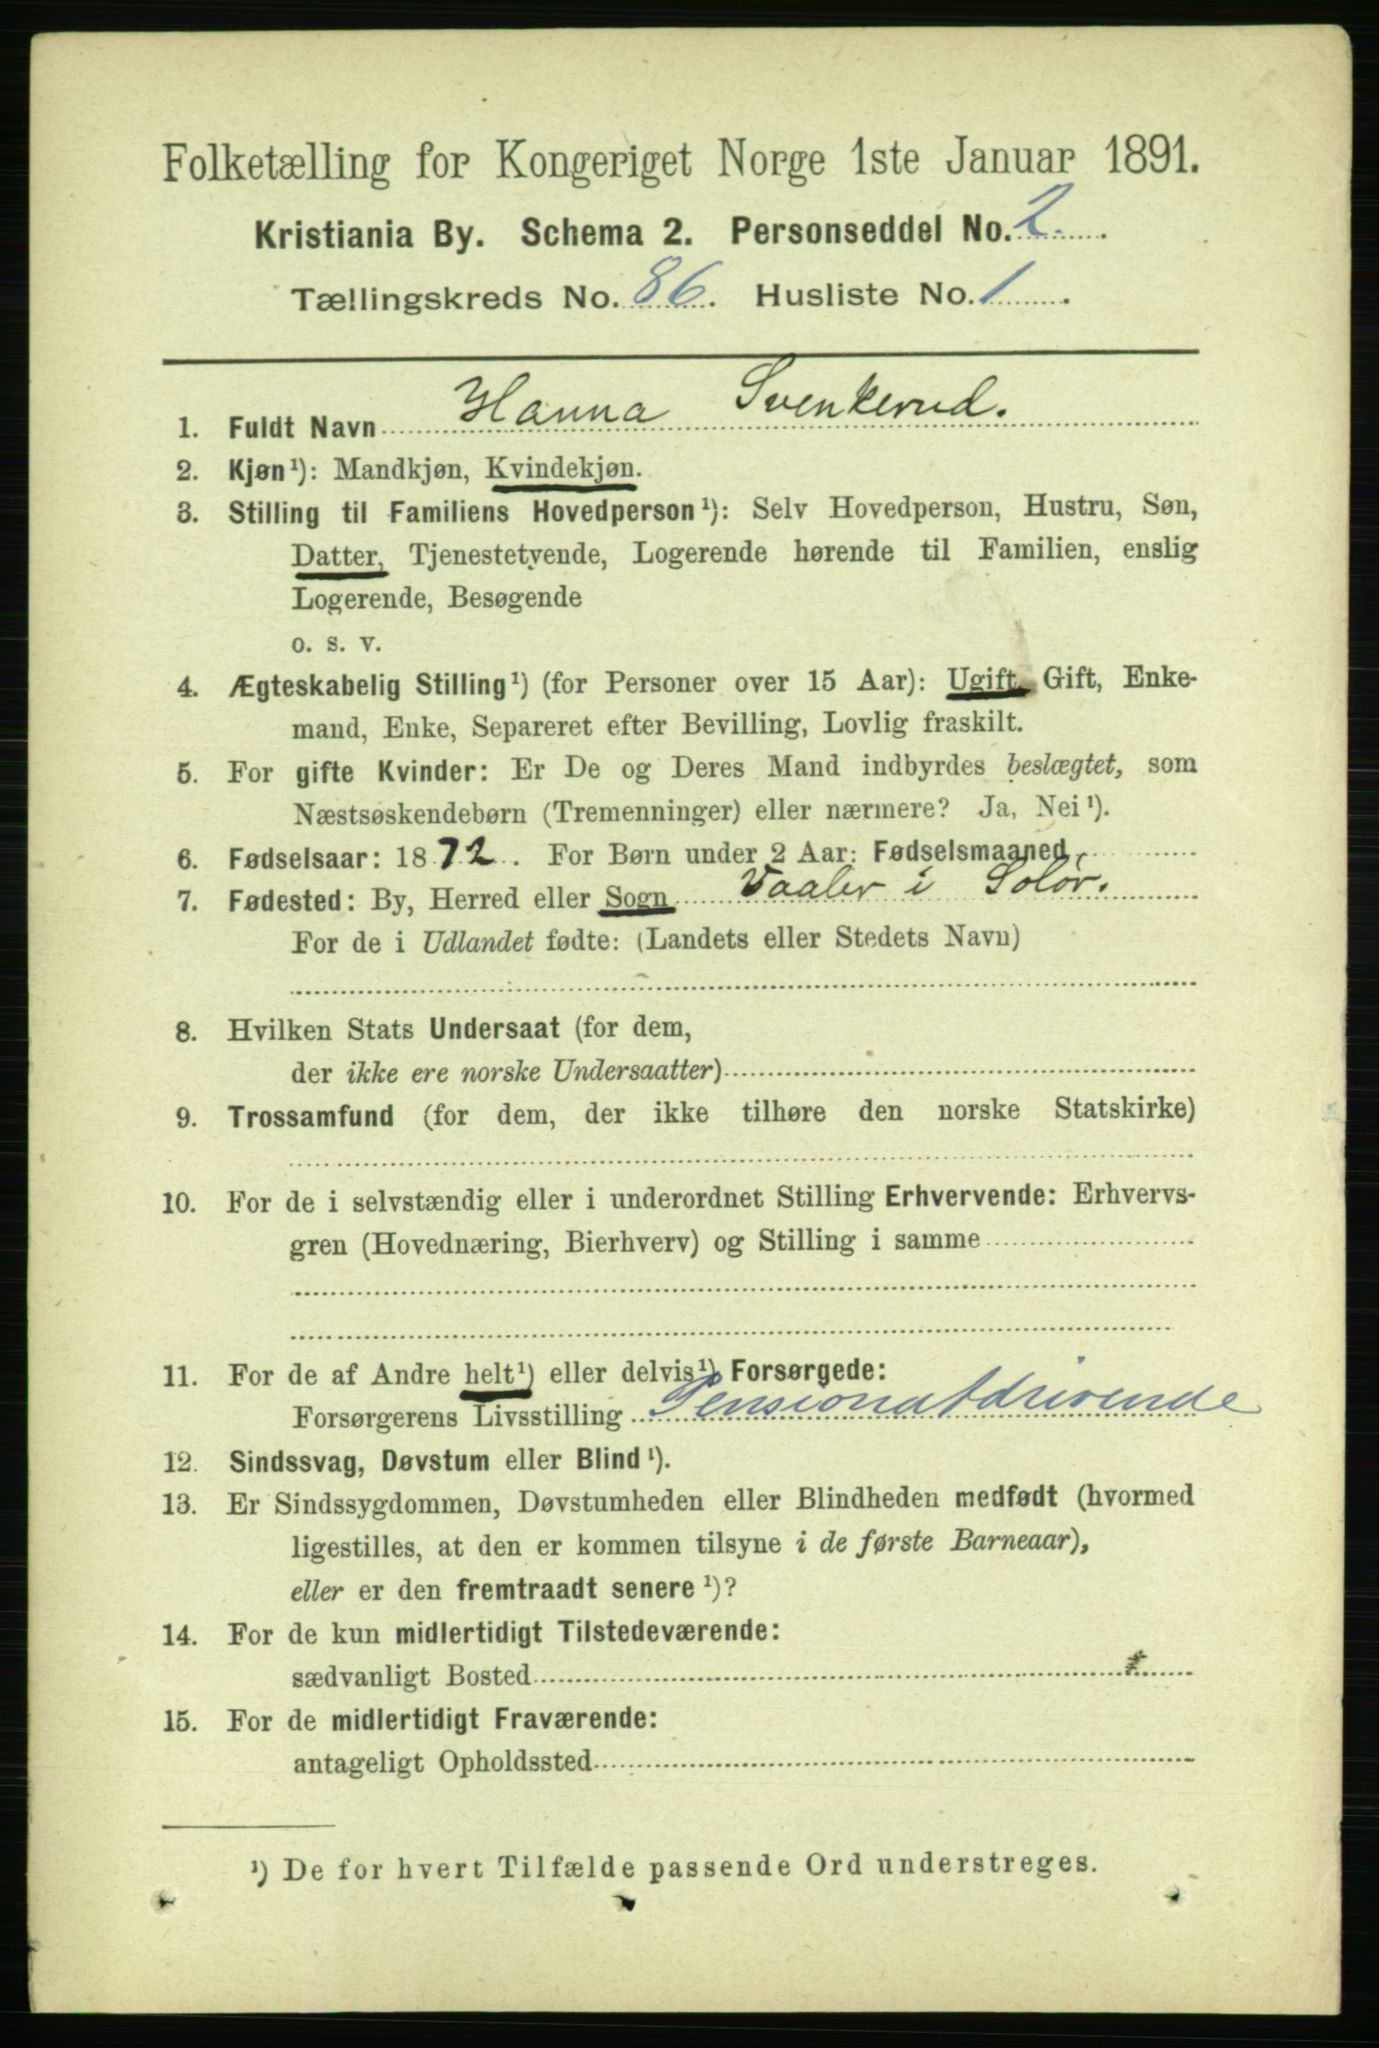 Folketælling for Kongeriget Norge 1ste Januar 1891.
Kristiania By. Schema 2. Personseddel No. 2.
Tællingskreds No. 86. Husliste No. 1.
1. Fuldt Navn Hanna Svenkerud.
2. Kjøn¹): Mandkjøn, Kvindekjøn.
3. Stilling til Familiens Hovedperson¹): Selv Hovedperson, Hustru, Søn,
Datter, Tjenestetyende, Logerende hørende til Familien, enslig
Logerende, Besøgende
o. s. v.
4. Ægteskabelig Stilling¹) (for Personer over 15 Aar): Ugift, Gift, Enke-
mand, Enke, Separeret efter Bevilling, Lovlig fraskilt.
5. For gifte Kvinder: Er De og Deres Mand indbyrdes beslægtet, som
Næstsøskendebørn (Tremenninger) eller nærmere? Ja, Nei¹).
6. Fødselsaar: 1872. For Børn under 2 Aar: Fødselsmaaned
7. Fødested: By, Herred eller Sogn Vaaler i Solør.
For de i Udlandet fødte: (Landets eller Stedets Navn)
8. Hvilken Stats Undersaat (for dem,
der ikke ere norske Undersaatter)
9. Trossamfund (for dem, der ikke tilhøre den norske Statskirke)
10. For de i selvstændig eller i underordnet Stilling Erhvervende: Erhvervs-
gren (Hovednæring, Bierhverv) og Stilling i samme
11. For de af Andre helt¹) eller delvis¹) Forsørgede:
Forsørgerens Livsstilling Pensionatdrivende
12. Sindssvag, Døvstum eller Blind¹).
13. Er Sindssygdommen, Døvstumheden eller Blindheden medfødt (hvormed
ligestilles, at den er kommen tilsyne i de første Barneaar),
eller er den fremtraadt senere¹)?
14. For de kun midlertidigt Tilstedeværende:
sædvanligt Bosted
15. For de midlertidigt Fraværende:
antageligt Opholdssted
¹) De for hvert Tilfælde passende Ord understreges.